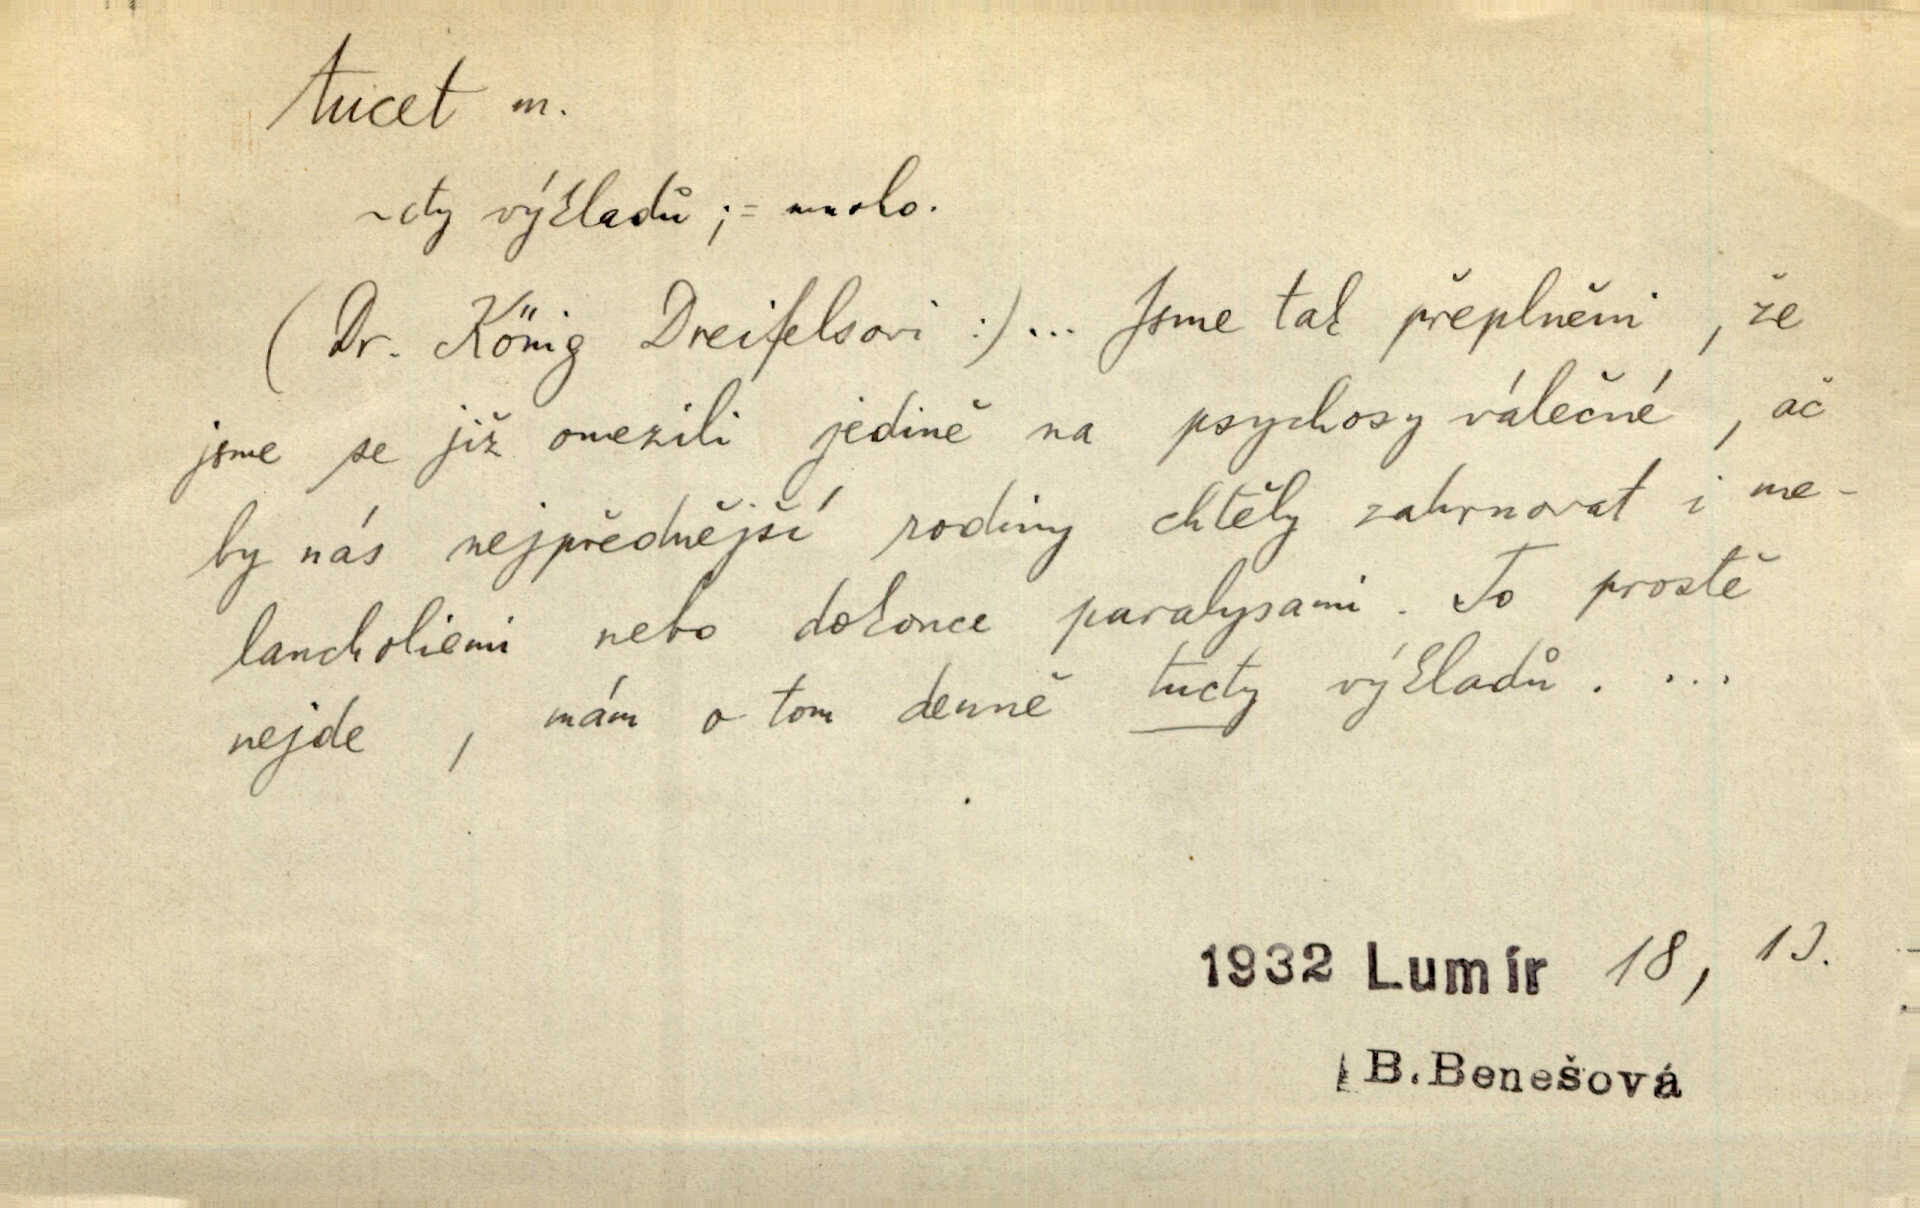 tucet m.
~cty výkladů ; = mnoho.
(Dr. König Dreifelsovi :) ... Jsme tak přeplněni , že
jsme se již omezili jedině na psychosy válečné , ač
by nás nejpřednější rodiny chtěly zahrnovat i me-
lancholiemi nebo dokonce paralysami . To prostě
nejde , mám o tom denně tucty výkladů . ...
1932 Lumír 18, 13.
B. Benešová